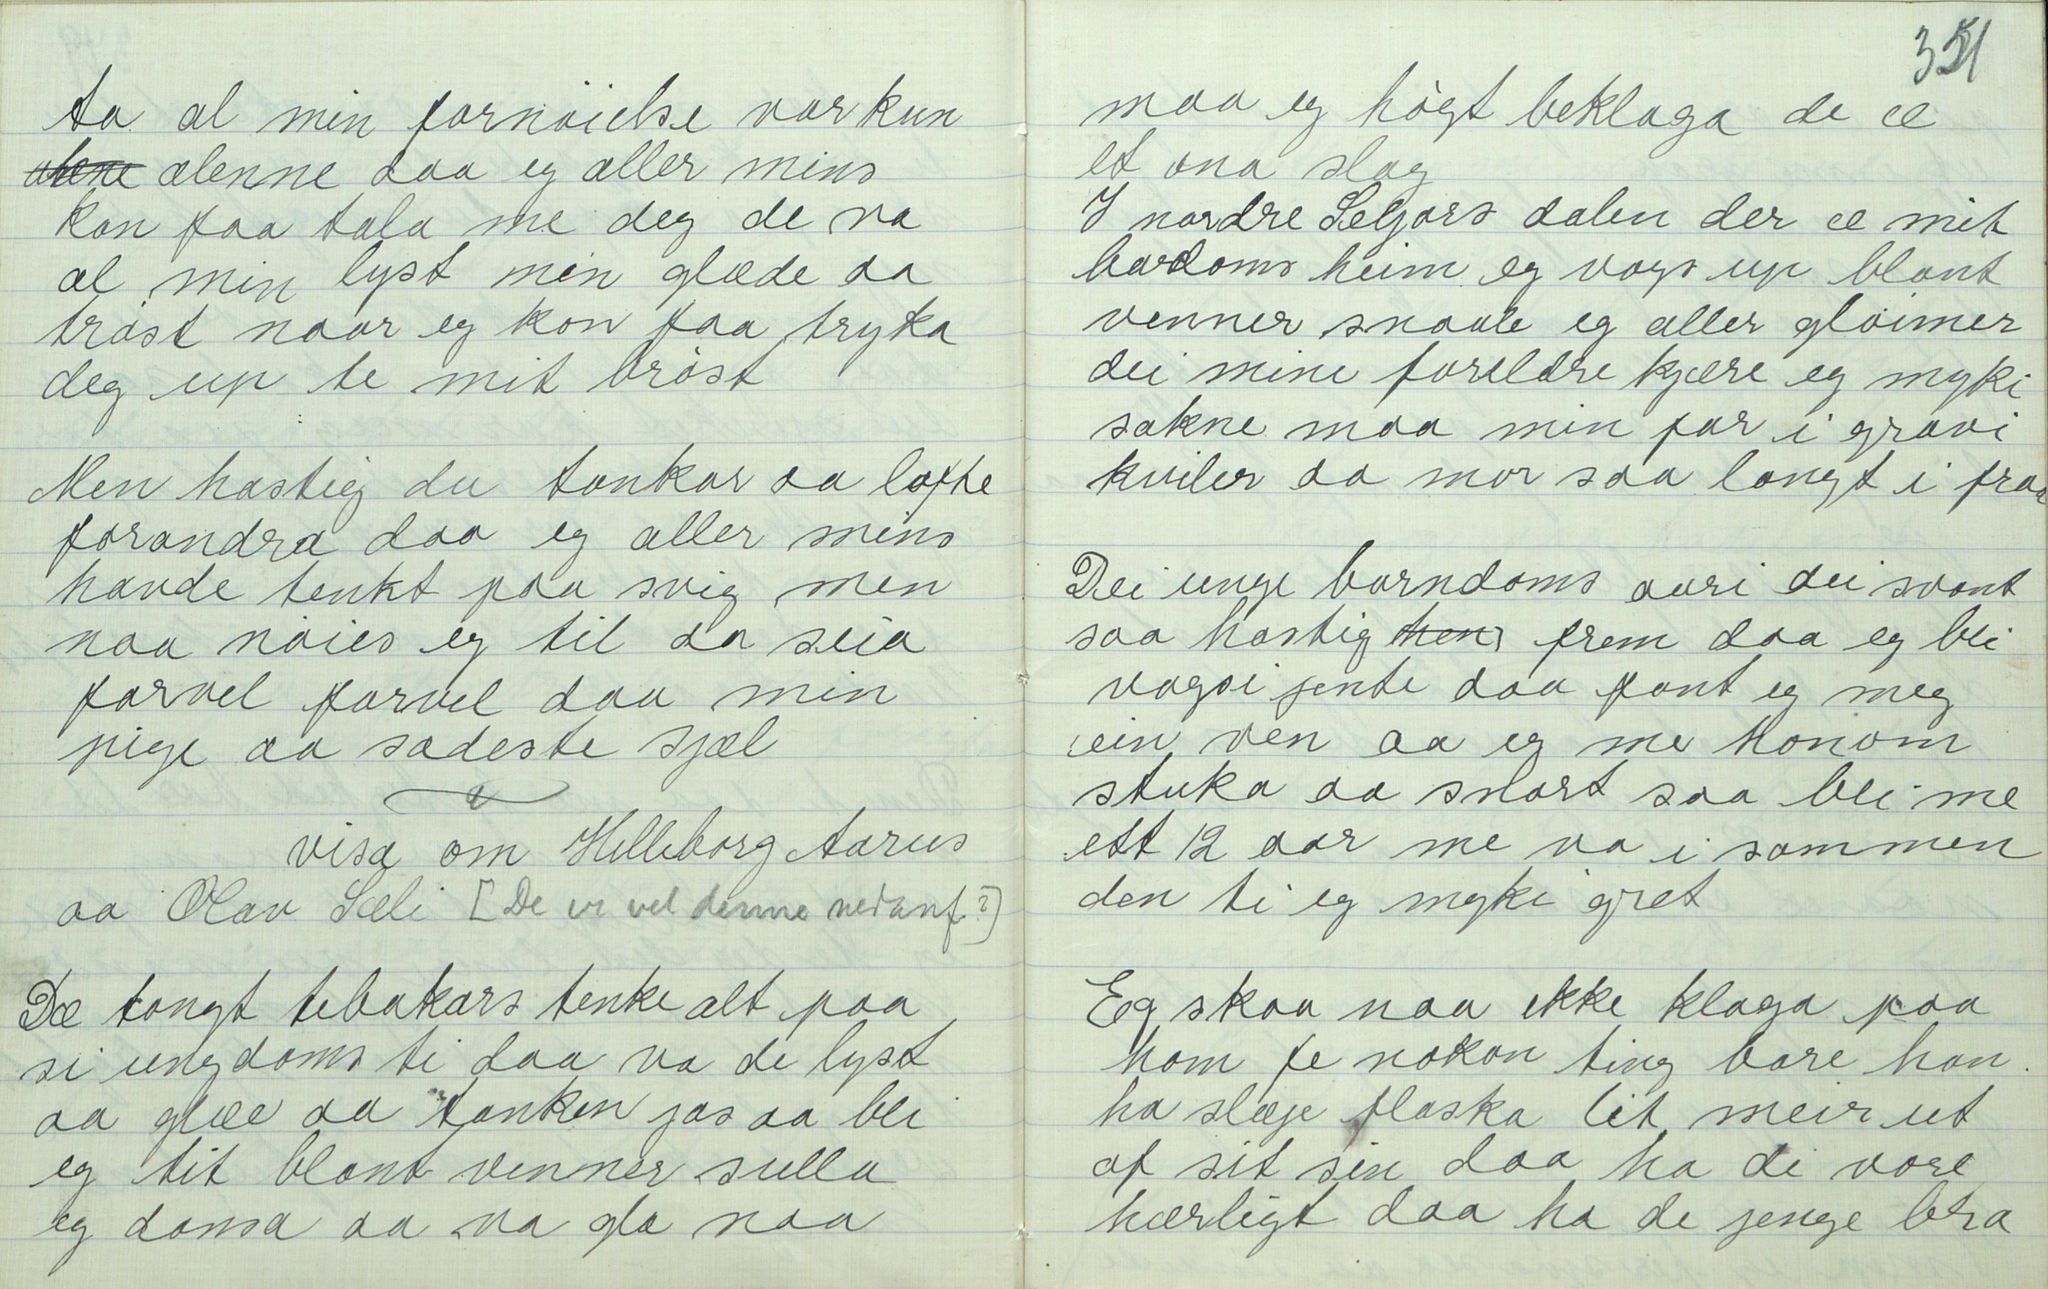 ta al min fornöielse var kun
alene alenne daa eg aller mins
kon faa tala me deg de va
al min lyst min glæde aa
tröst naar eg kon faa tryka
deg up te mit bröst
Men hastig du tankar aa lofte
forandra daa eg aller mins
havde tenkt paa svig men
naa nöies eg til aa seia
farvel farvel daa min
pige aa sødeste sjæl
visa om Hilleborg Aarus
aa Olav Sæli [De er vel denne nedanf?]
Dæ tongt tebakars tenke alt paa
si ungdoms ti daa va de lyst
aa glæe aa tanken jas aa bli
eg tit blant venner sulla
eg dansa aa va gla naa
351
maa eg högt beklaga de æ
et ona slag
I nordre Seljors dalen der æ mit
bardoms heim eg vogs up blant
venner snaale eg aller glöimer
dei mine foreldre kjære eg myki
sakne maa min far i gravi
kviler aa mor saa langt i fraa
Dei unge barndoms aari dei svant
saa hastig hen frem daa eg bli
vagsi jente daa fant eg meg
ein ven aa eg me honom
stuka aa snart saa blei me
ett 12 aar me va i sammen
den ti eg myki gret
Eg skaa naa ikke klaga paa
hom fe nokon ting bare han
ha sleje flaska lit meir ut
af sit sin daa ha de vore
hærligt daa ha de jenge bra